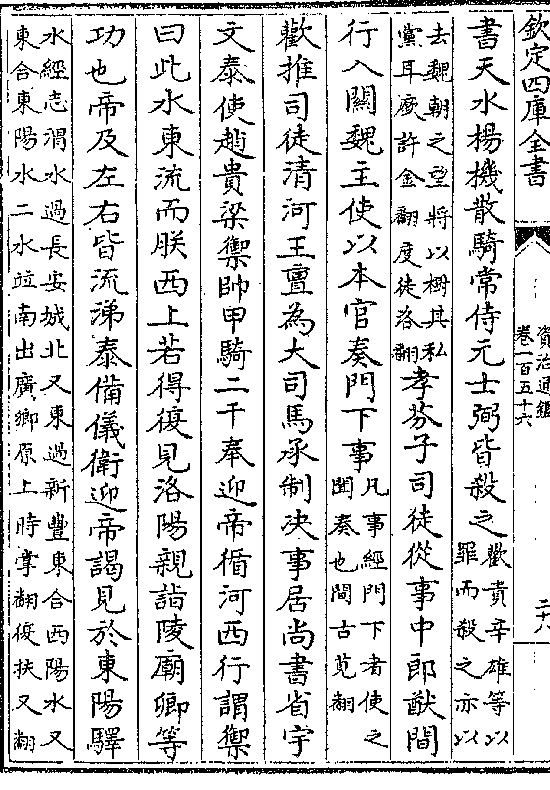 欽定四庫全書
資治通鑑
卷一百五十六
二十八
書天水楊機散騎常侍元士弼皆殺之
歡責辛雄等以
罪而殺之亦以
去魏朝之望將以樹其私
黨耳廞許金翻度徒洛翻
孝芬子司徒從事中郎猷間
行入關魏主使以本官奏門下事
凡事經門下者使之
聞奏也間古莧翻
歡推司徒清河王亶為大司馬承制决事居尚書省宇
文泰使趙貴梁禦帥甲騎二千奉迎帝循河西行謂禦
曰此水東流而朕西上若得復見洛陽親詣陵廟卿等
功也帝及左右皆流涕泰備儀衛迎帝謁見於東陽驛
水經志渭水過長安城北又東過新豐東合西陽水又
東合東陽水二水竝南出廣鄉原上時掌翻復扶又翻